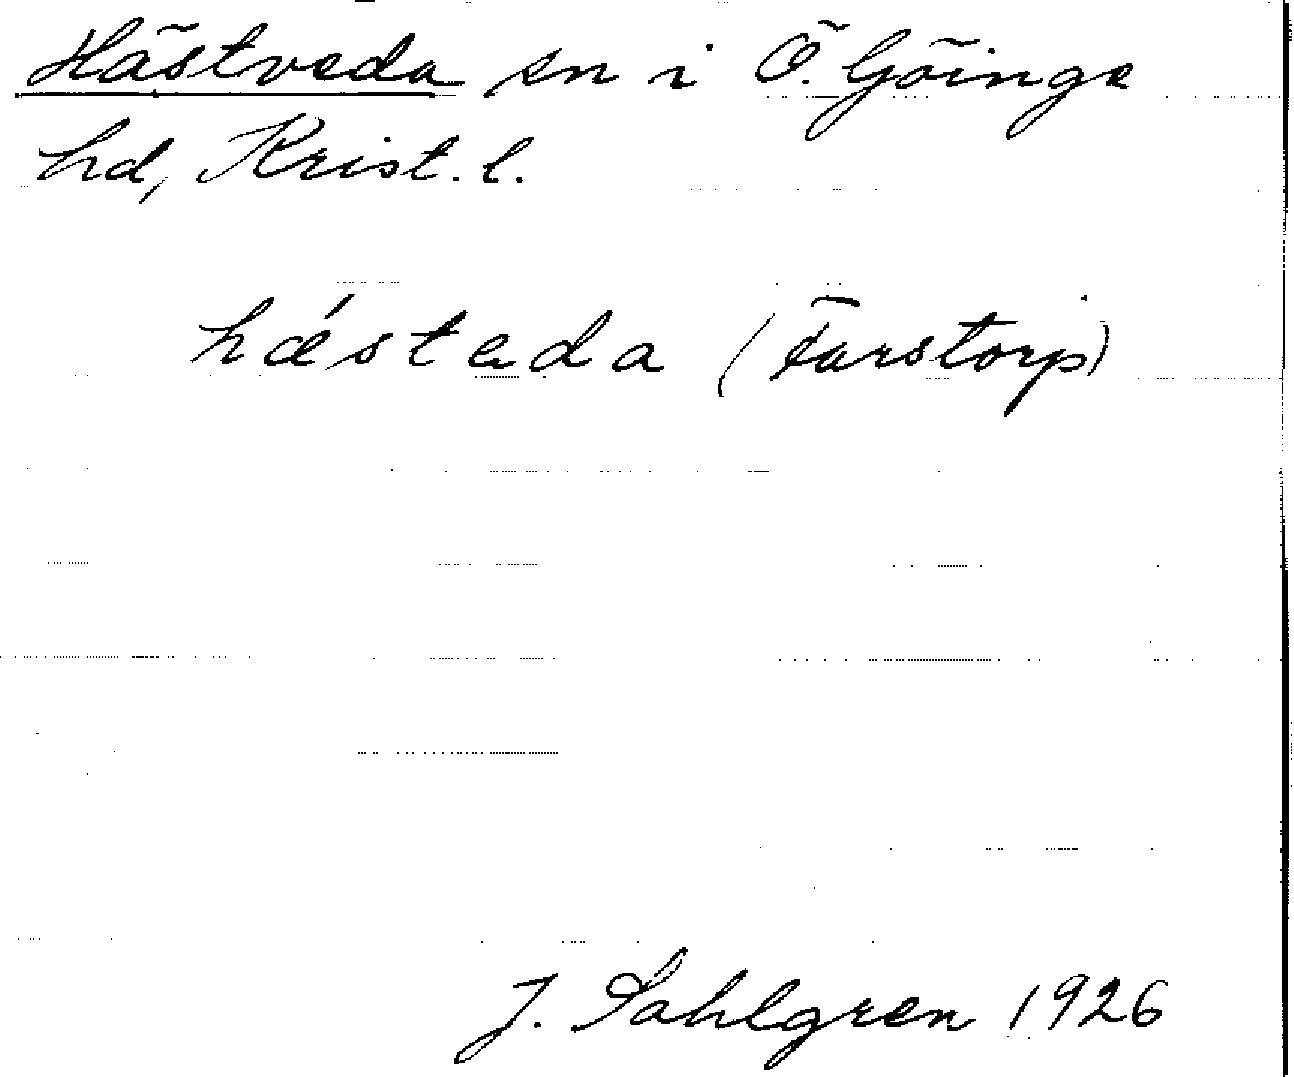 Hästveda sn i Ö. Göinge
hd, Krist. l.
hǽstada (Farstorp)
J. Sahlgren 1926